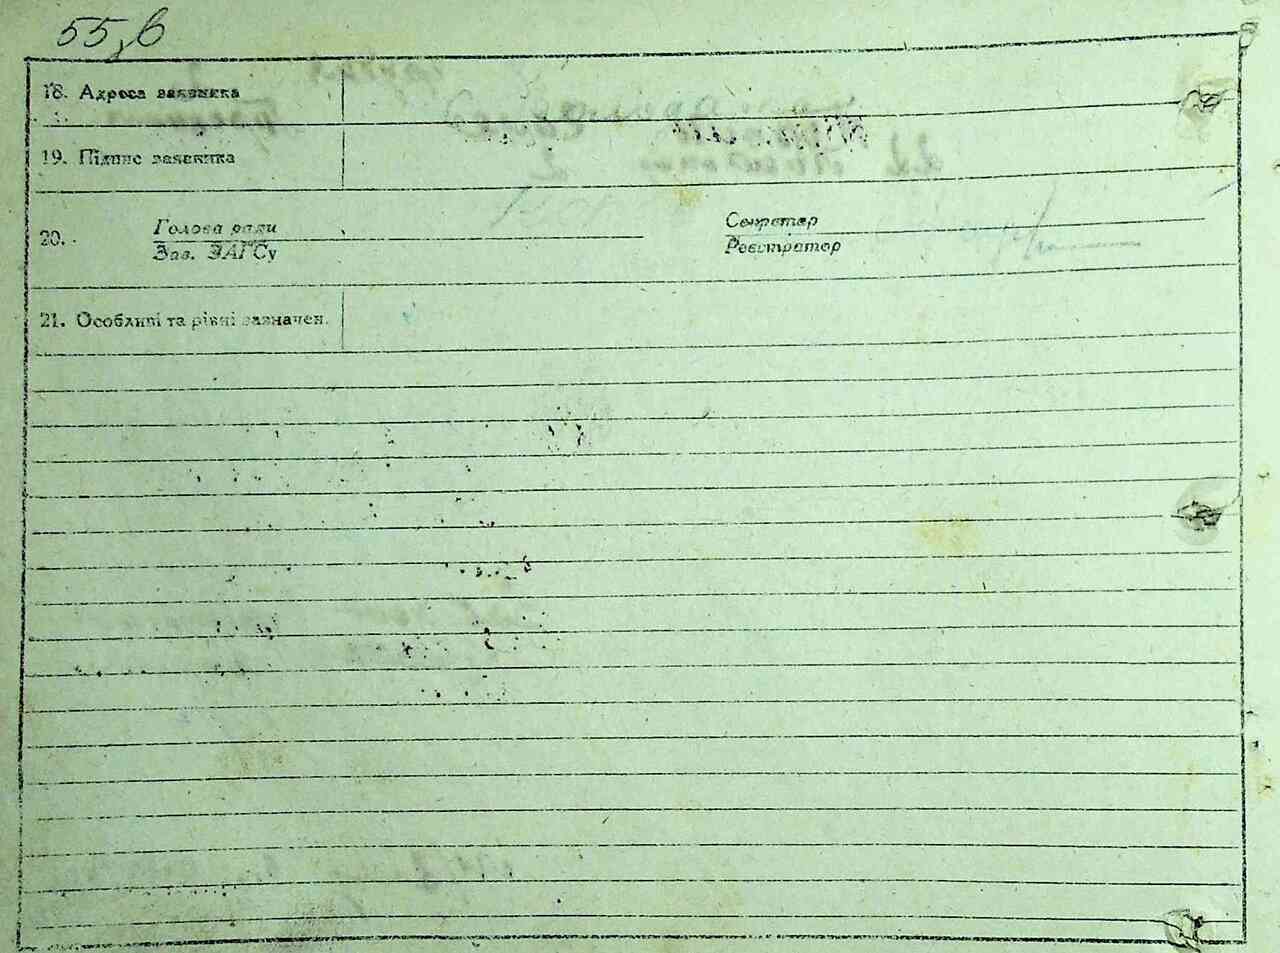 55,в
18. Адреса заявника
19. Підпис заявника
20. Голова ради Секретар
Зав. ЗАГСу Реєстратор
21. Особливі та рівні зазначен.